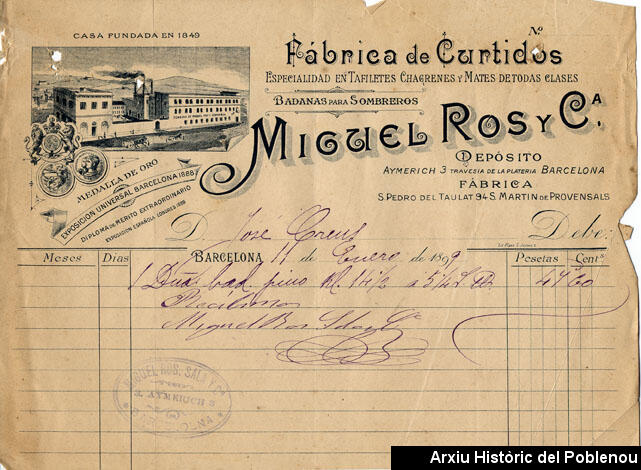 CASA FUNDADA EN 1849
Nº
Fábrica de Curtidos
ESPECIALIDAD EN TAFILETES CHAGRENES Y MATES DE TODAS CLASES
BADANAS PARA SOMBREROS
MIGUEL ROS Y Cª.
DEPÓSITO
AYMERICH 3 TRAVESIA DE LA PLATERIA BARCELONA
FÁBRICA
S. PEDRO DEL TAULAT 94 S. MARTIN DE PROVENSALS
MEDALLA DE ORO
EXPOSICION UNIVERSAL BARCELONA 1888
DIPLOMA DE MERITO EXTRAORDINARIO
EXPOSICION ESPAÑOLA LONDRES 1889
D. Jose Creus Debe:
BARCELONA 11 de Enero de 1899
Meses Dias Pesetas Cents
1 Dna bad. pino Kl. 14 1/2 a 47 60
Recibimos
Miguel Ros Sala y Cª
MIGUEL ROS, SALA Y Cª
3, AYMERICH 3
BARCELONA
Arxiu Històric del Poblenou